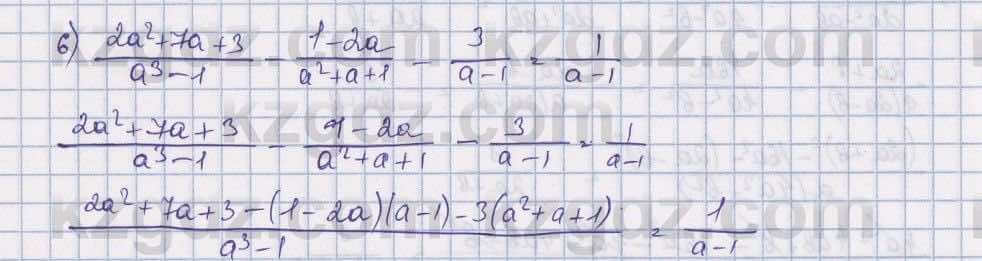 б) (2a²+7a+3)/(a³-1) - (1-2a)/(a²+a+1) - 3/(a-1) = 1/(a-1)
(2a²+7a+3)/(a³-1) - (1-2a)/(a²+a+1) - 3/(a-1) = 1/(a-1)
(2a²+7a+3-(1-2a)(a-1)-3(a²+a+1))/(a³-1) = 1/(a-1)
kzgaz.com